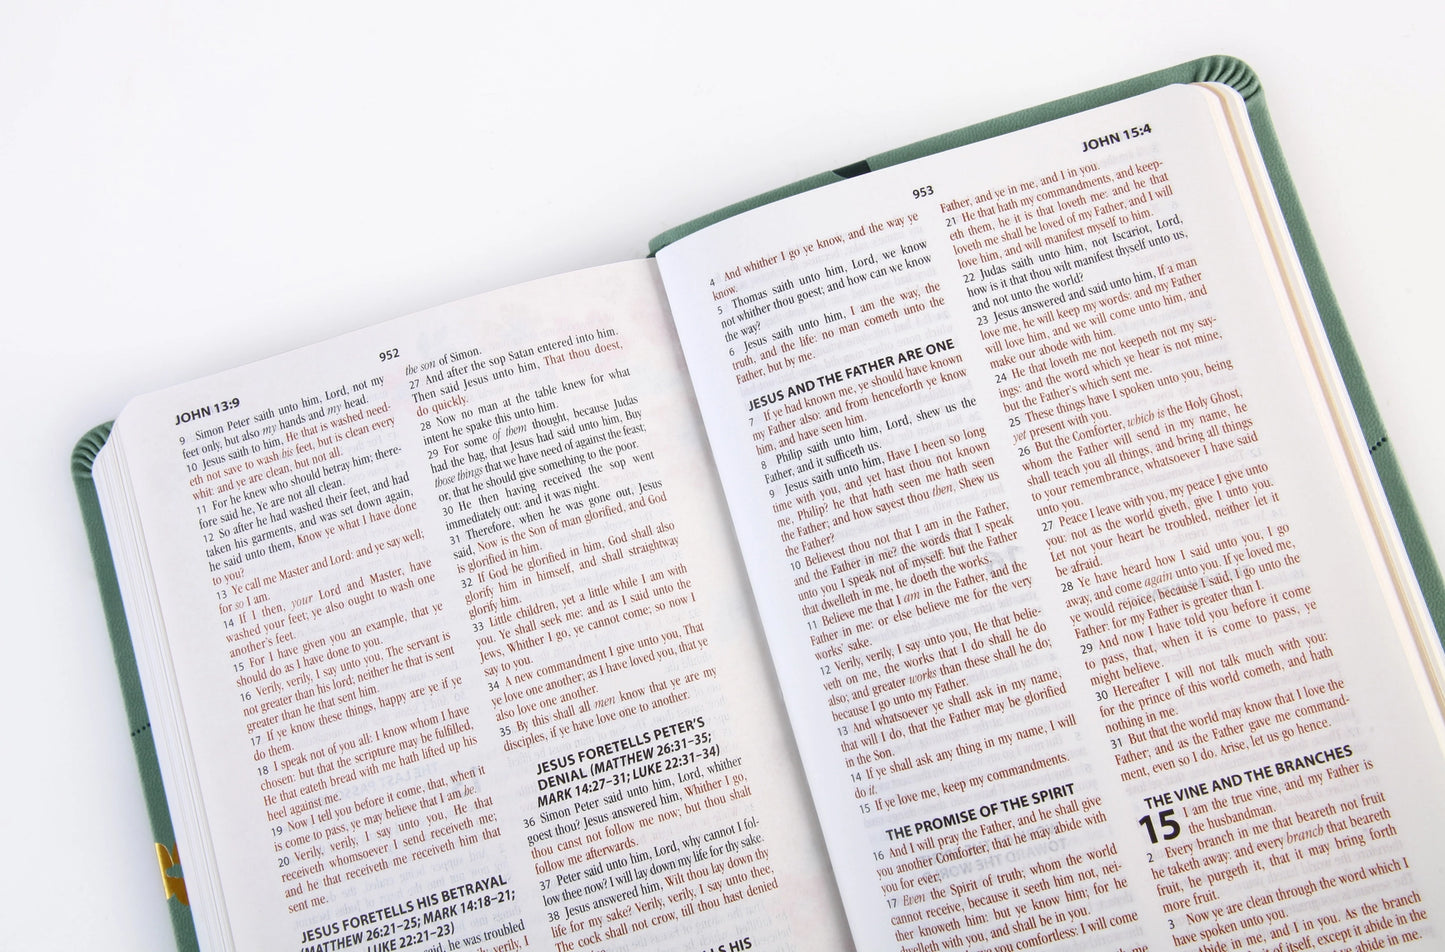 JOHN 13:9
952
9 Simon Peter saith unto him, Lord, not my
feet only, but also my hands and my head.
10 Jesus saith to him. He that is washed need-
eth not save to wash his feet, but is clean every
whit: and ye are clean, but not all.
11 For he knew who should betray him; there-
fore said he, Ye are not all clean.
12 So after he had washed their feet, and had
taken his garments, and was set down again,
he said unto them, Know ye what I have done
to you?
13 Ye call me Master and Lord: and ye say well;
for so I am.
14 If I then, your Lord and Master, have
washed your feet; ye also ought to wash one
another's feet.
15 For I have given you an example, that ye
should do as I have done to you.
16 Verily, verily, I say unto you, The servant is
not greater than his lord; neither he that is sent
greater than he that sent him.
17 If ye know these things, happy are ye if ye
do them.
18 I speak not of you all: I know whom I have
chosen: but that the scripture may be fulfilled,
He that eateth bread with me hath lifted up his
heel against me.
19 Now I tell you before it come, that, when it
is come to pass, ye may believe that I am he.
20 Verily, verily, I say unto you, He that
receiveth whomsoever I send receiveth me;
and he that receiveth me receiveth him that
sent me.
JESUS FORETELLS HIS BETRAYAL
(MATTHEW 26:21–25; MARK 14:18–21;
LUKE 22:21–23)
said, he was troubled
verily, I
the son of Simon.
27 And after the sop Satan entered into him.
Then said Jesus unto him, That thou doest,
do quickly.
28 Now no man at the table knew for what
intent he spake this unto him.
29 For some of them thought, because Judas
had the bag, that Jesus had said unto him, Buy
those things that we have need of against the feast;
or, that he should give something to the poor.
30 He then having received the sop went
immediately out: and it was night.
31 Therefore, when he was gone out, Jesus
said, Now is the Son of man glorified, and God
is glorified in him.
32 If God be glorified in him, God shall also
glorify him in himself, and shall straightway
glorify him.
33 Little children, yet a little while I am with
you. Ye shall seek me: and as I said unto the
Jews, Whither I go, ye cannot come; so now I
say to you.
34 A new commandment I give unto you, That
ye love one another; as I have loved you, that ye
also love one another.
35 By this shall all men know that ye are my
disciples, if ye have love one to another.
JESUS FORETELLS PETER'S
DENIAL (MATTHEW 26:31–35;
MARK 14:27–31; LUKE 22:31–34)
36 Simon Peter said unto him, Lord, whither
goest thou? Jesus answered him, Whither I go,
thou canst not follow me now; but thou shalt
follow me afterwards.
37 Peter said unto him, Lord, why cannot I fol-
low thee now? I will lay down my life for thy sake.
38 Jesus answered him, Wilt thou lay down thy
life for my sake? Verily, verily, I say unto thee,
The cock shall not crow, till thou hast denied
HIS
953
JOHN 15:4
4 And whither I go ye know, and the way ye
know.
5 Thomas saith unto him, Lord, we know
not whither thou goest; and how can we know
the way?
6 Jesus saith unto him, I am the way, the
truth, and the life: no man cometh unto the
Father, but by me.
JESUS AND THE FATHER ARE ONE
7 If ye had known me, ye should have known
my Father also: and from henceforth ye know
him, and have seen him.
8 Philip saith unto him, Lord, shew us the
Father, and it sufficeth us.
9 Jesus saith unto him, Have I been so long
time with you, and yet hast thou not known
me, Philip? he that hath seen me hath seen
the Father; and how sayest thou then, Shew us
the Father?
10 Believest thou not that I am in the Father,
and the Father in me? the words that I speak
unto you I speak not of myself: but the Father
that dwelleth in me, he doeth the works.
11 Believe me that I am in the Father, and the
Father in me: or else believe me for the very
works' sake.
12 Verily, verily, I say unto you, He that belie-
veth on me, the works that I do shall he do
also; and greater works than these shall he do;
because I go unto my Father.
13 And whatsoever ye shall ask in my name,
that will I do, that the Father may be glorified
in the Son.
14 If ye shall ask any thing in my name, I will
do it.
15 If ye love me, keep my commandments.
THE PROMISE OF THE SPIRIT
16 And I will pray the Father, and he shall give
you another Comforter, that he may abide with
you for ever;
17 Even the Spirit of truth; whom the world
cannot receive, because it seeth him not, nei-
ther knoweth him: but ye know him; for he
dwelleth with you, and shall be in you.
you comfortless: I will come
Father, and ye in me, and I in you.
21 He that hath my commandments, and keep-
eth them, he it is that loveth me: and he that
loveth me shall be loved of my Father, and I will
love him, and will manifest myself to him.
22 Judas saith unto him, not Iscariot, Lord,
how is it that thou wilt manifest thyself unto us,
and not unto the world?
23 Jesus answered and said unto him, If a man
love me, he will keep my words: and my Father
will love him, and we will come unto him, and
make our abode with him.
24 He that loveth me not keepeth not my say-
ings: and the word which ye hear is not mine,
but the Father's which sent me.
25 These things have I spoken unto you, being
yet present with you.
26 But the Comforter, which is the Holy Ghost,
whom the Father will send in my name, he
shall teach you all things, and bring all things
to your remembrance, whatsoever I have said
unto you.
27 Peace I leave with you, my peace I give unto
you: not as the world giveth, give I unto you.
Let not your heart be troubled, neither let it
be afraid.
28 Ye have heard how I said unto you, I go
away, and come again unto you. If ye loved me,
ye would rejoice, because I said, I go unto the
Father: for my Father is greater than I.
29 And now I have told you before it come
to pass, that, when it is come to pass, ye
might believe.
30 Hereafter I will not talk much with you:
for the prince of this world cometh, and hath
nothing in me.
31 But that the world may know that I love the
Father; and as the Father gave me command-
ment, even so I do. Arise, let us go hence.
THE VINE AND THE BRANCHES
15 I am the true vine, and my Father is
the husbandman.
2 Every branch in me that beareth not fruit
he taketh away: and every branch that beareth
fruit, he purgeth it, that it may bring forth
more fruit.
3 Now ye are clean through the word which I
have spoken unto you.
me, and I in you. As the branch
itself, except it abide in the